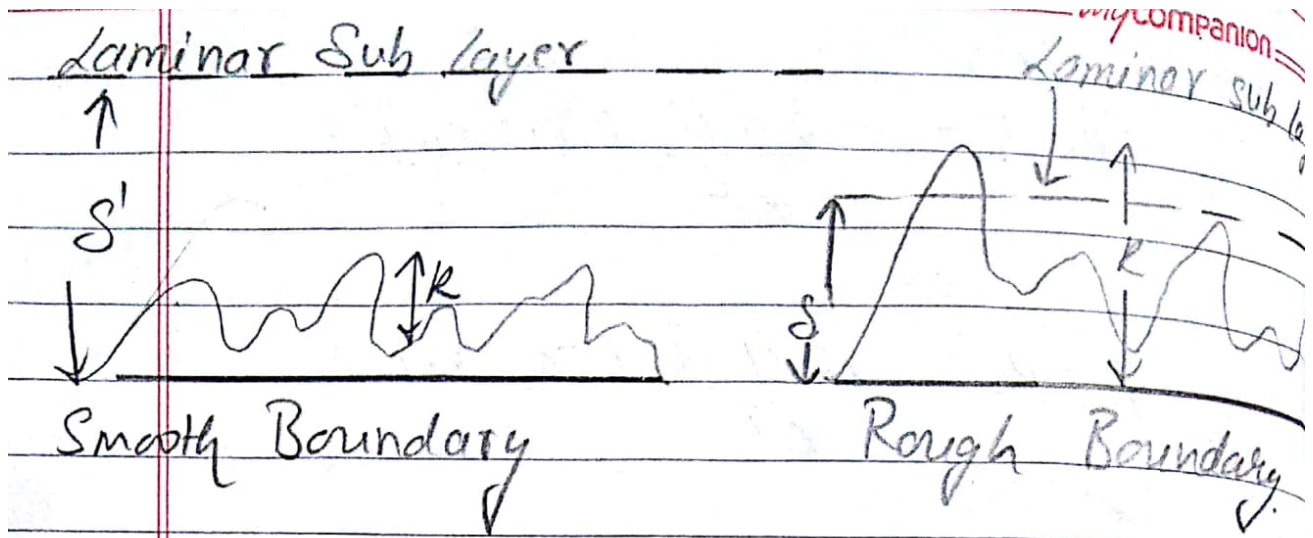 myCompanion
Laminar Sub layer
Laminor sub
S'
k
S
k
Smooth Boundary
Rough Boundary.